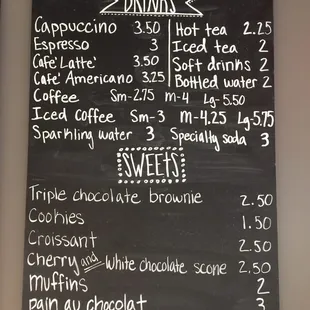 DRINKS
Cappuccino 3.50
Espresso 3
Cafe' Latte' 3.50
Cafe' Americano 3.25
Hot tea 2.25
Iced tea 2
Soft drinks 2
Bottled water 2
Coffee Sm-2.75 M-4 Lg-5.50
Iced Coffee Sm-3 M-4.25 Lg-5.75
Sparkling water 3 Specialty soda 3
SWEETS
Triple chocolate brownie 2.50
Cookies 1.50
Croissant 2.50
Cherry and White chocolate scone 2.50
muffins 2
pain au chocolat 3